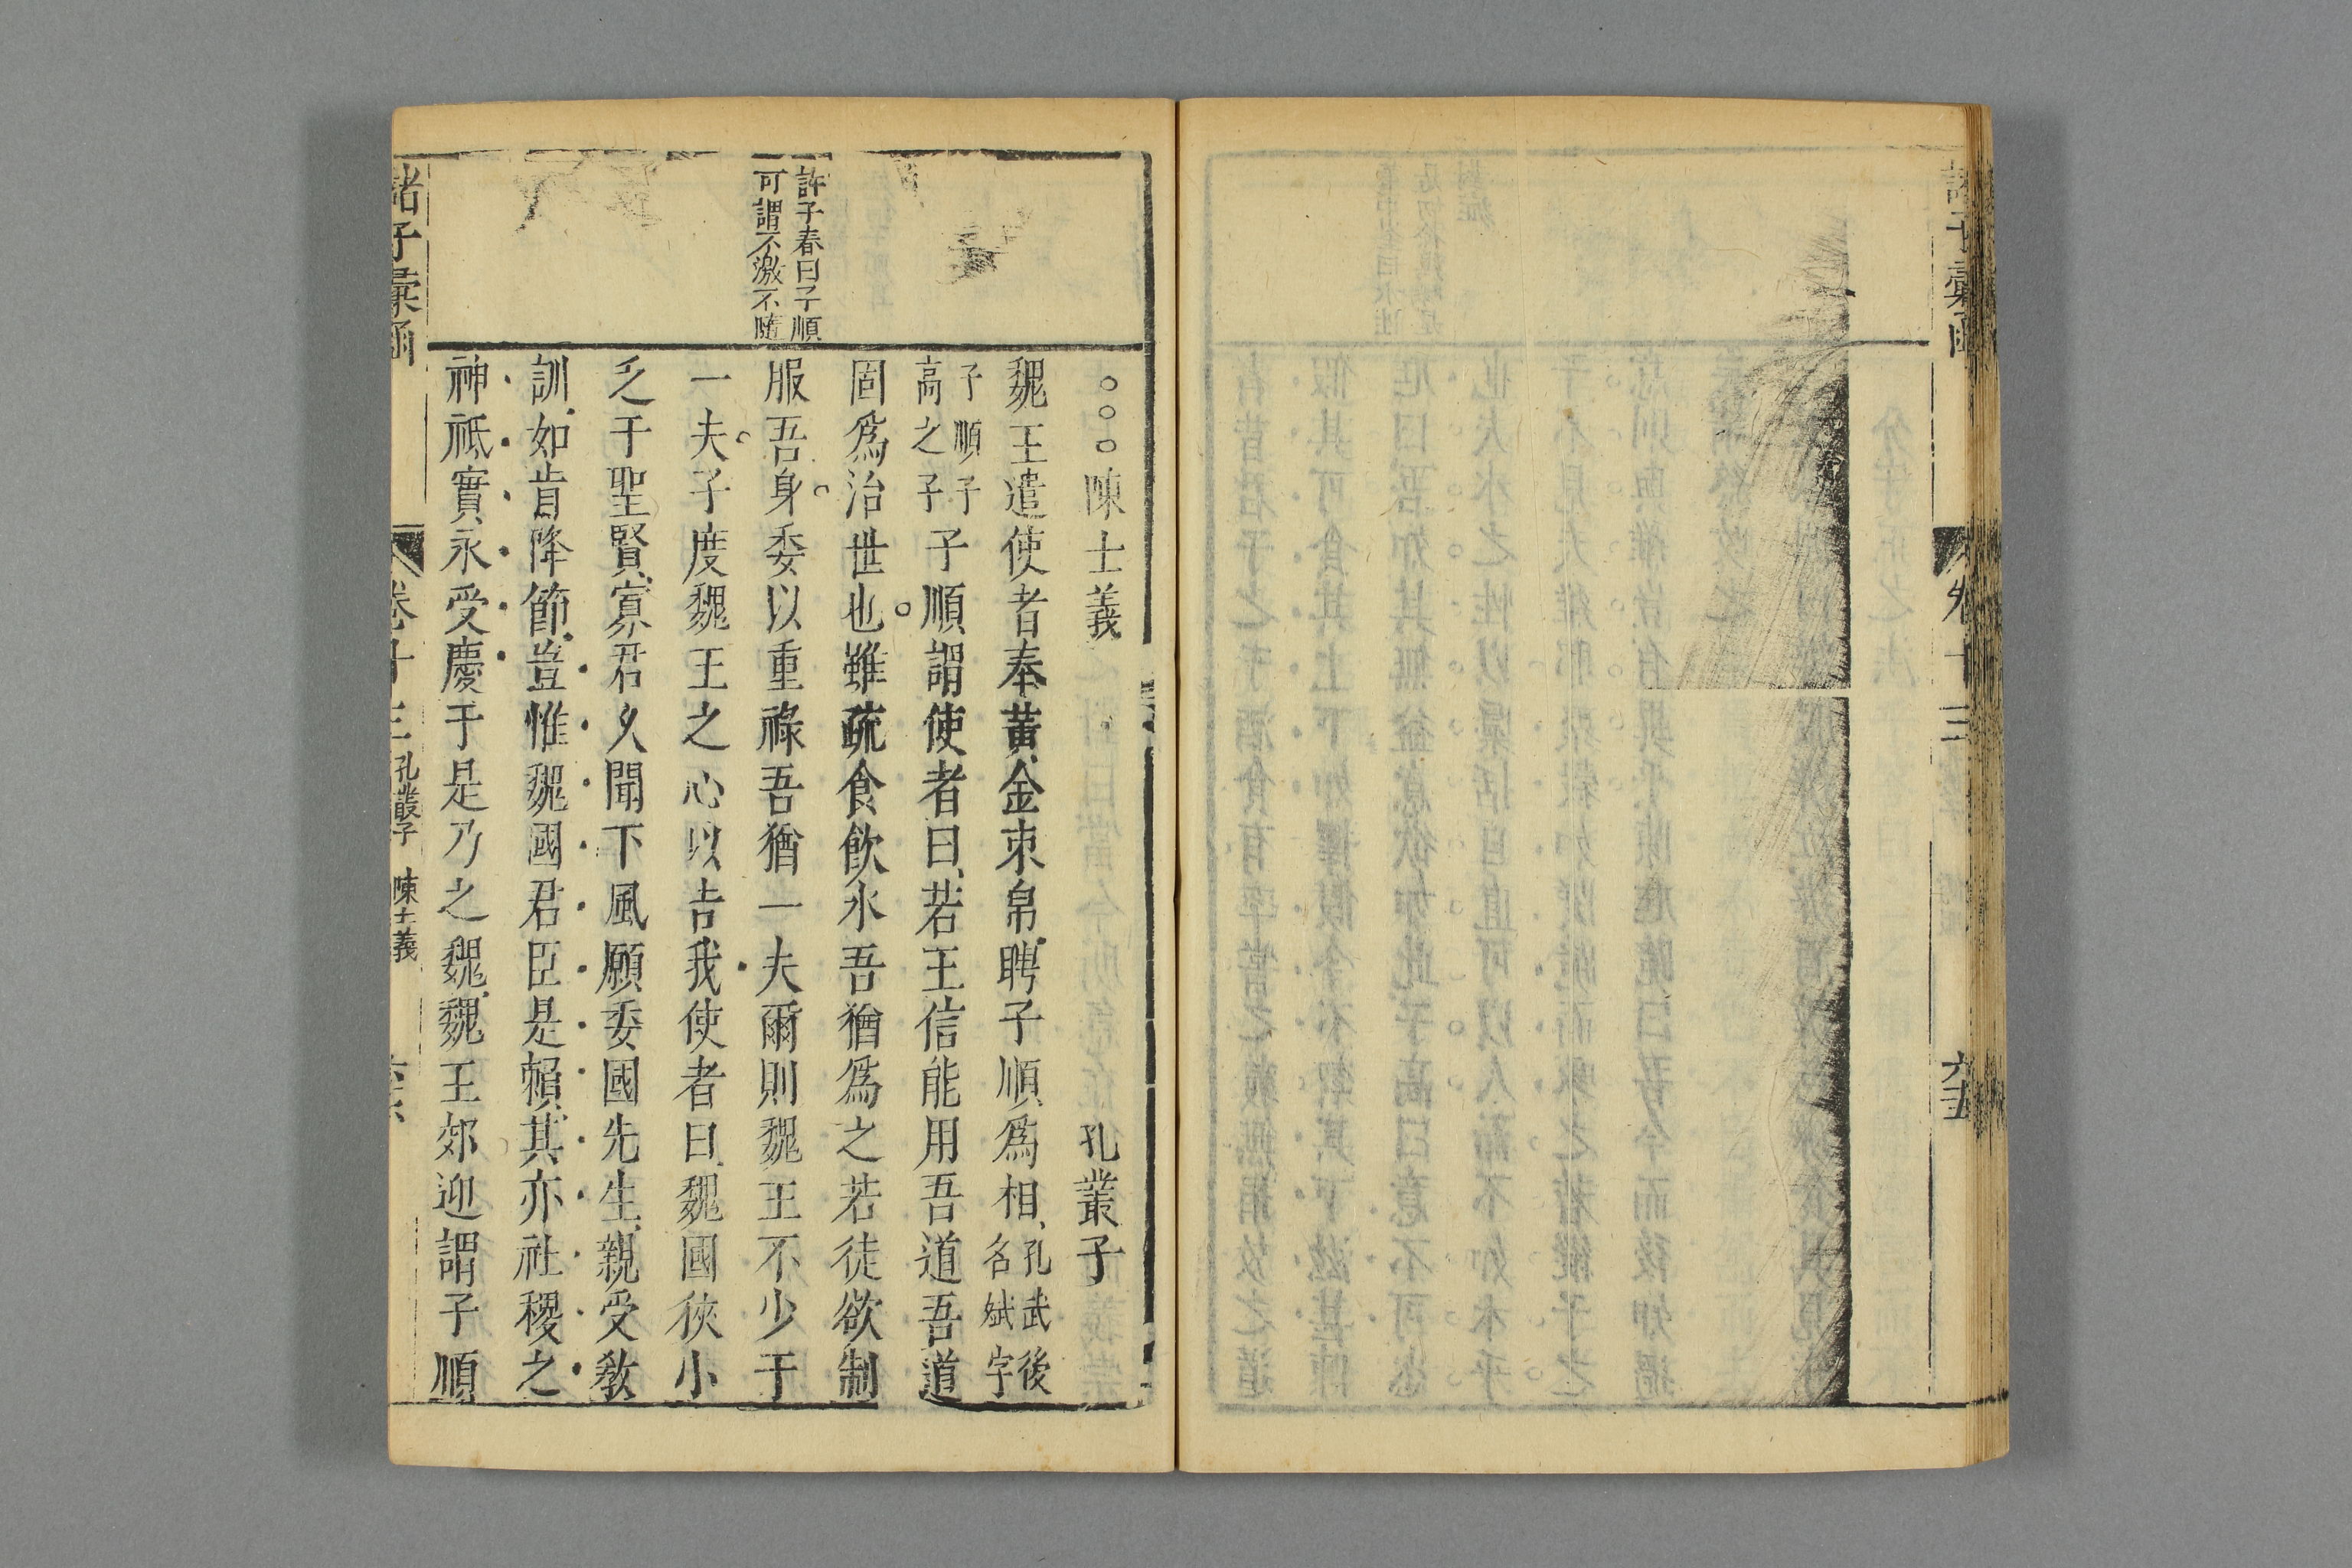 諸子彙函
卷十三
六十五
許子春曰子順
可謂不激不隨
○○○陳士義 孔叢子
魏王遣使者奉黃金束帛聘子順爲相孔武後名斌字
子順子高之子子順謂使者曰若王信能用吾道吾道
固爲治世也雖蔬食飲水吾猶爲之若徒欲制
服吾身委以重祿吾猶一夫爾則魏王不少于
一夫子度魏王之心以告我使者曰魏國狹小
乏于聖賢寡君久聞下風願委國先生親受敎
訓如肯降節豈惟魏國君臣是賴其亦社稷之
神祇實永受慶于是乃之魏魏王郊迎謂子順
諸子彙函
卷十三
孔叢子 陳士義